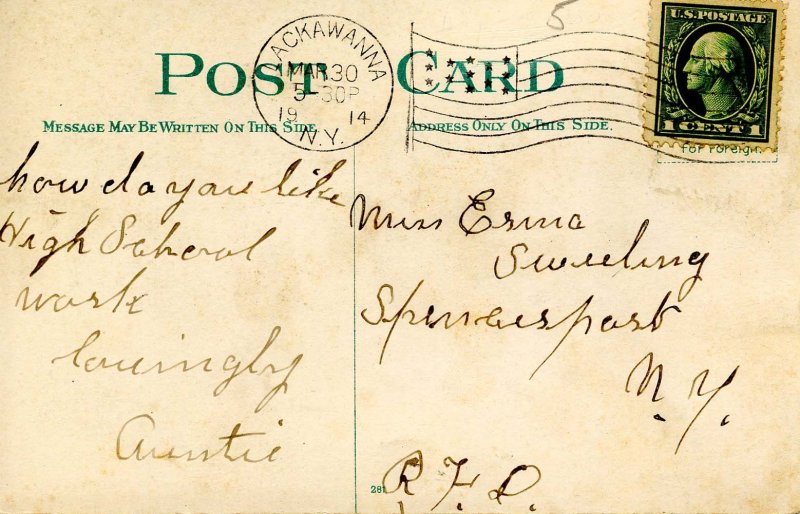 POST CARD
MESSAGE MAY BE WRITTEN ON THIS SIDE
ADDRESS ONLY ON THIS SIDE.
LACKAWANNA
MAR 30
5-30P
19 14
N.Y.
5
U.S. POSTAGE
1 CENT 1
for Foreign.
how do you like
High School
work
lovingly
Auntie
Miss Erma
Sweeting
Spencerport
N.Y.
R.F.D.
281